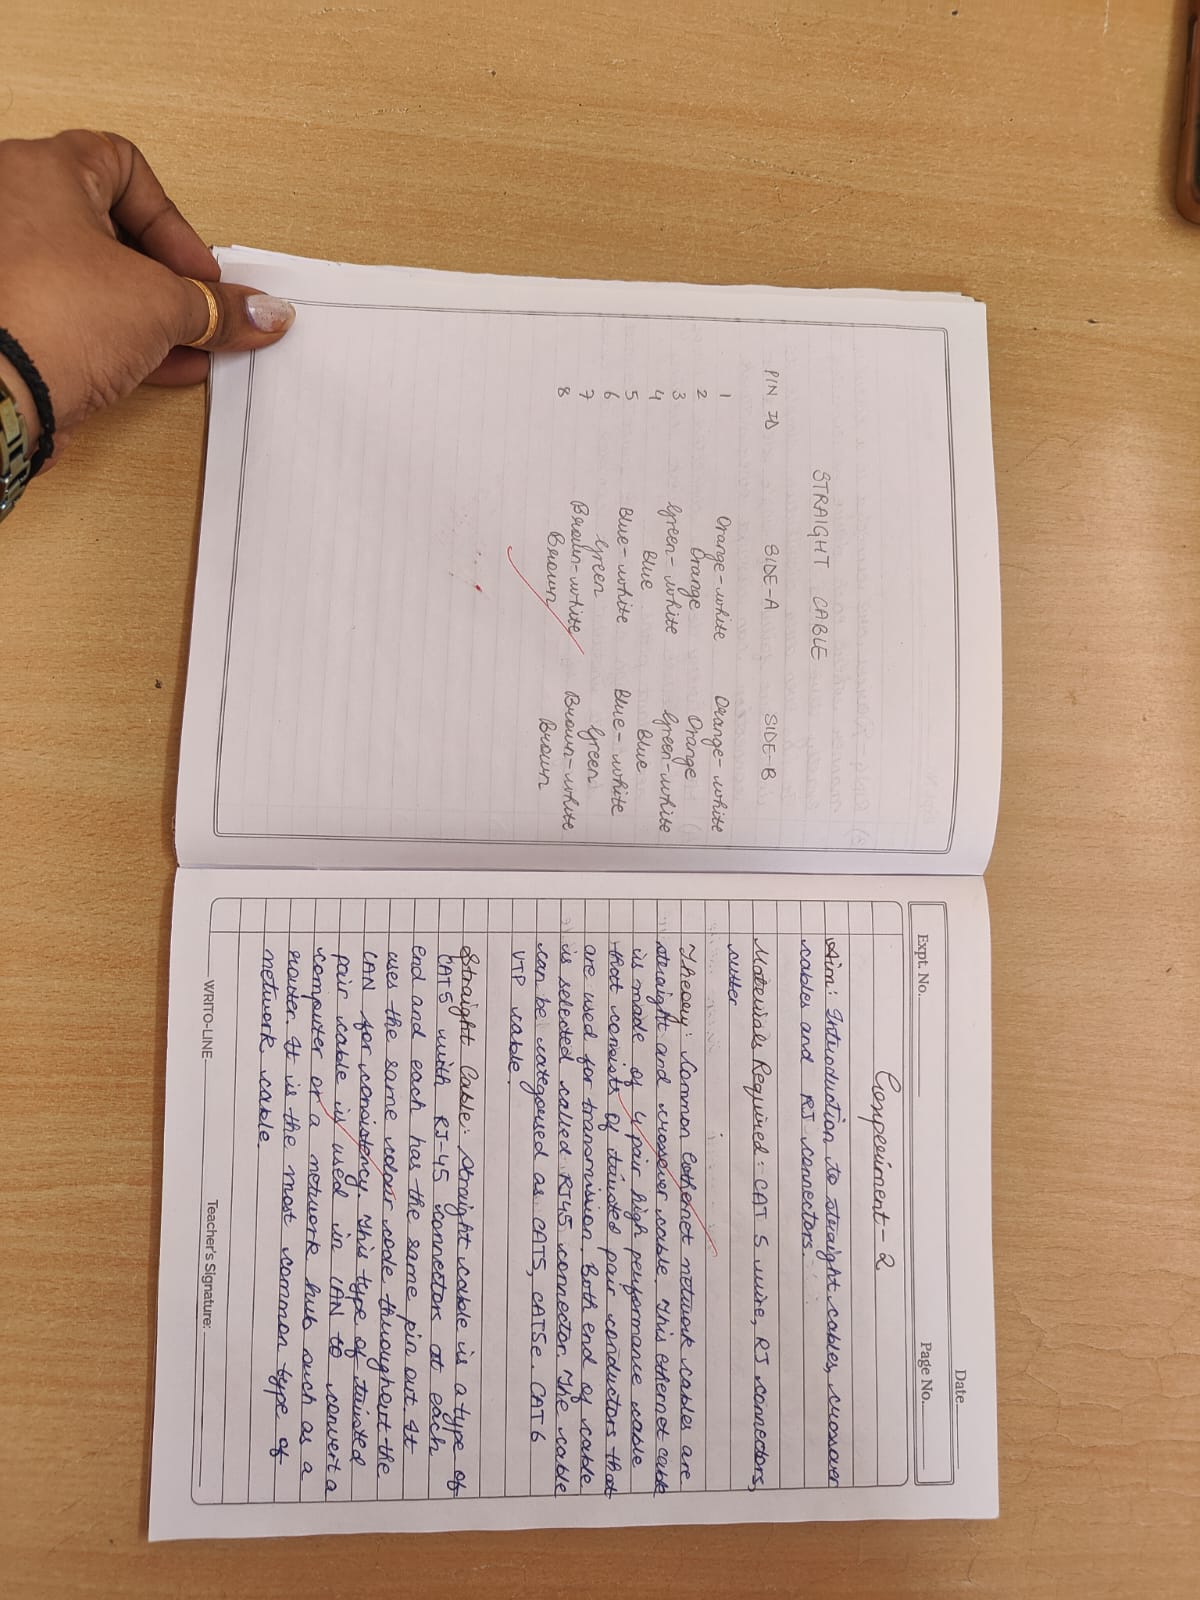 STRAIGHT CABLE
PIN ID SIDE-A SIDE-B
1 Orange-white Orange-white
2 Orange Orange
3 Green-white Green-white
4 Blue Blue
5 Blue-white Blue-white
6 Green Green
7 Brown-white Brown-white
8 Brown Brown
Date
Expt. No. Page No.
Experiment-2
Aim: Introduction to straight cables, crossover
cables and RJ connectors.
Materials Required: CAT 5 wire, RJ connectors,
cutter
Theory: Common Ethernet network cables are
straight and crossover cable. This ethernet cable
is made of 4 pair high performance cable
that consists of twisted pair conductors that
are used for transmission. Both end of cable
is selected called RJ45 connector. The cable
can be categorised as CAT5, CAT5e, CAT6
UTP cable.
Straight Cable: Straight cable is a type of
CAT5 with RJ-45 connectors at each
end and each has the same pin out. It
uses the same colour code throughout the
LAN for consistency. This type of twisted
pair cable is used in LAN to convert a
computer or a network hub such as a
router. It is the most common type of
network cable.
WRITO-LINE Teacher's Signature: